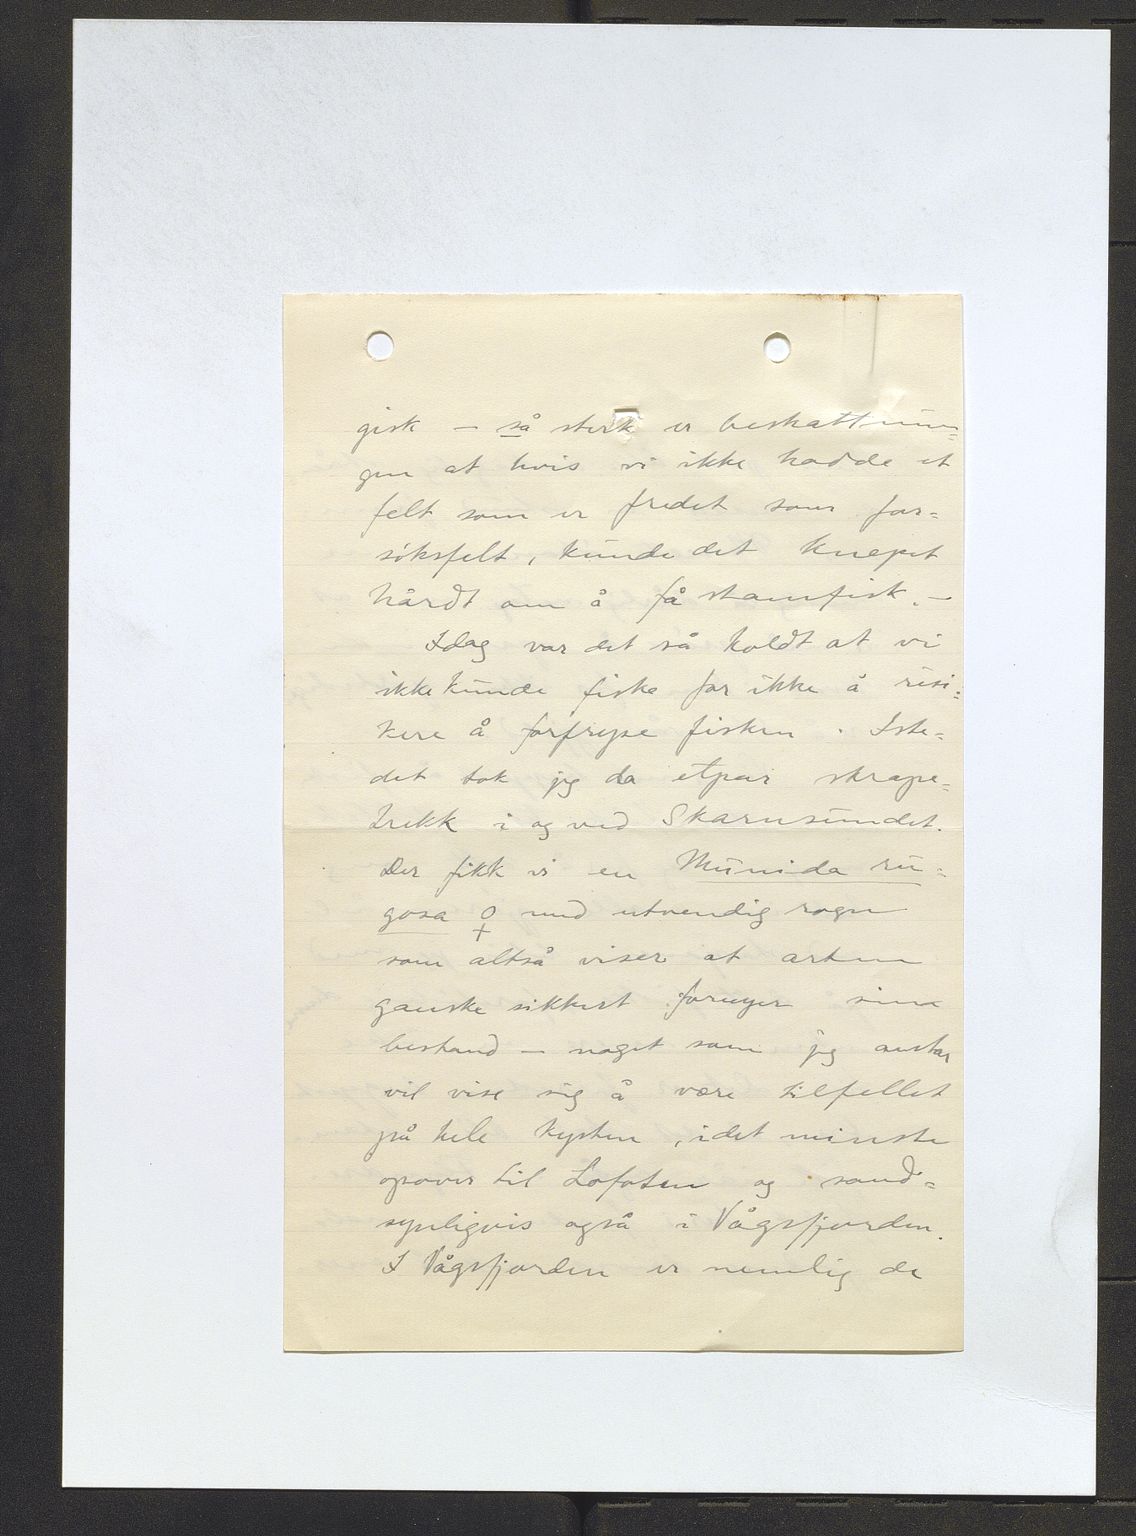 gisk — så sterk er beskattnin=
gen at hvis vi ikke hadde et
felt som er fredet som for=
søksfelt, kunde det knepet
hårdt om å få stamfisk. —
Idag var det så koldt at vi
ikke kunde fiske for ikke å risi=
kere å forfryse fisken. Iste=
det tok jeg da etpar skrape=
trekk i og ved Skarnsundet.
Der fikk vi en Munida ru=
gosa ♀ med utvendig rogn
som altså viser at arten
ganske sikkert fornyer sine
bestand — noget som jeg antar
vil vise sig å være tilfellet
på hele kysten, idet minste
opover til Lofoten og sand=
synligvis også i Vågsfjorden.
I Vågsfjorden er nemlig de